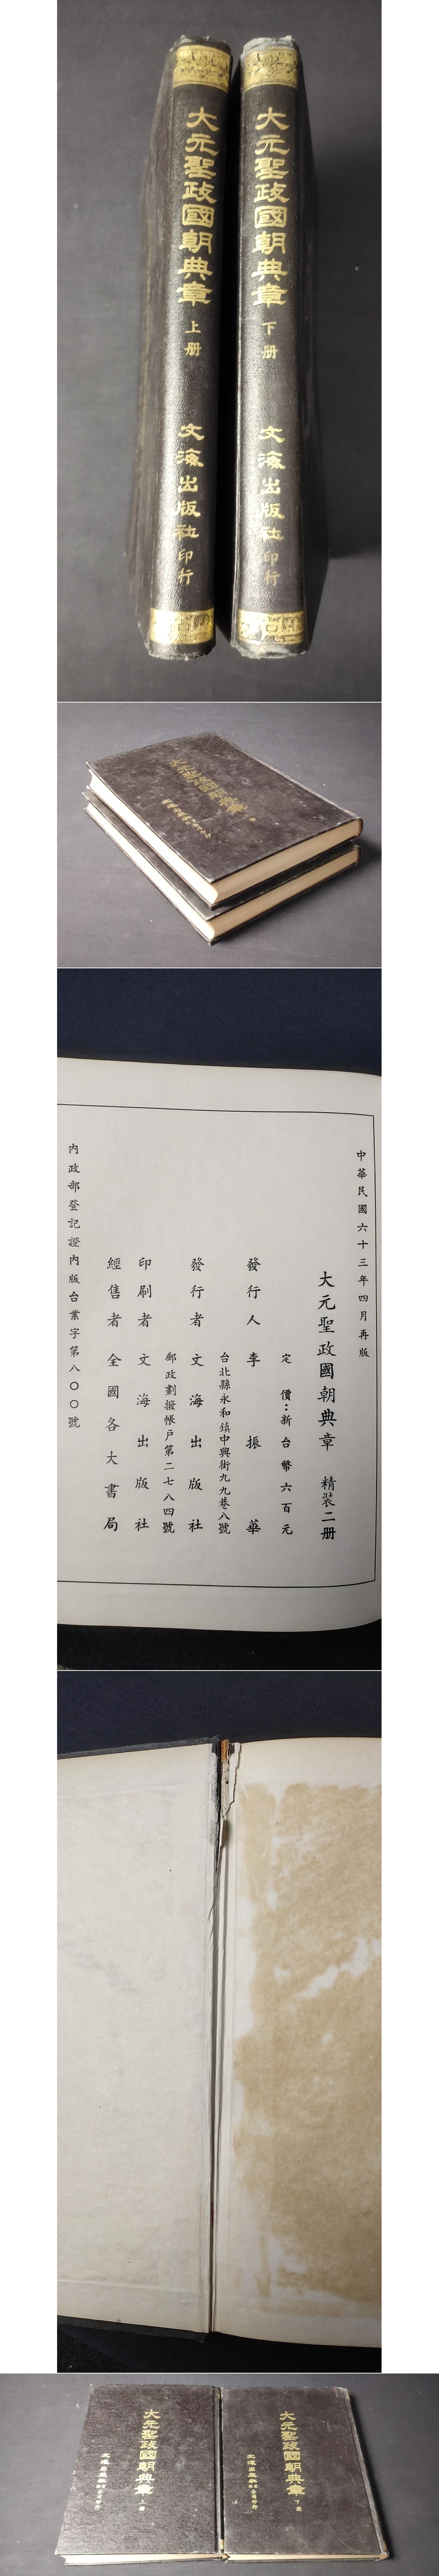 大元聖政國朝典章 上册 文海出版社 印行
大元聖政國朝典章 下册 文海出版社 印行
中華民國六十三年四月再版
大元聖政國朝典章 精裝二册
定 價：新台幣六百元
發行人 李振華
台北縣永和鎮中興街九九巷八號
發行者 文海出版社
郵政劃撥帳戶第二七八四號
印刷者 文海出版社
經售者 全國各大書局
內政部登記證內版台業字第八〇〇號
大元聖政國朝典章 上册
文海出版社
大元聖政國朝典章 下册
文海出版社